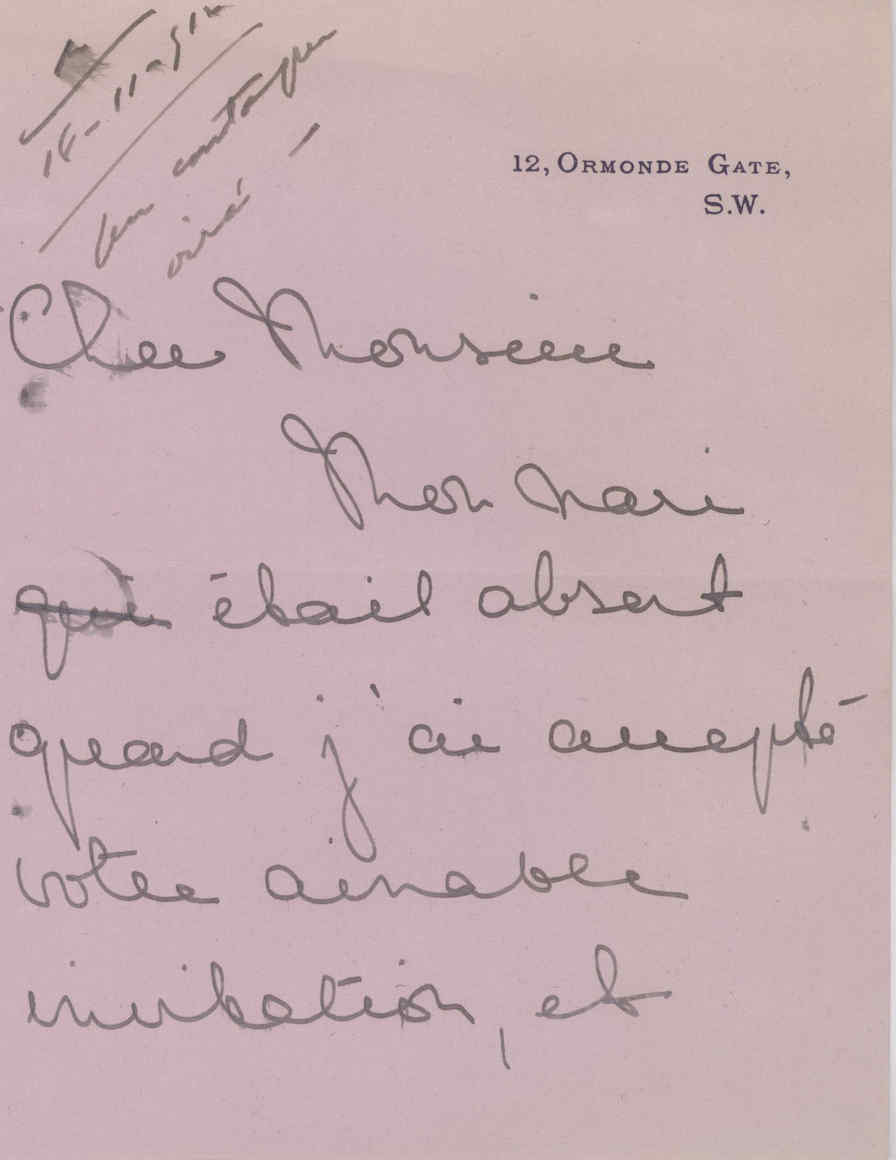 12, ORMONDE GATE,
S.W.
Cher Monsieur
Mon mari
qui était absent
quand j'ai accepté
votre aimable
invitation, et